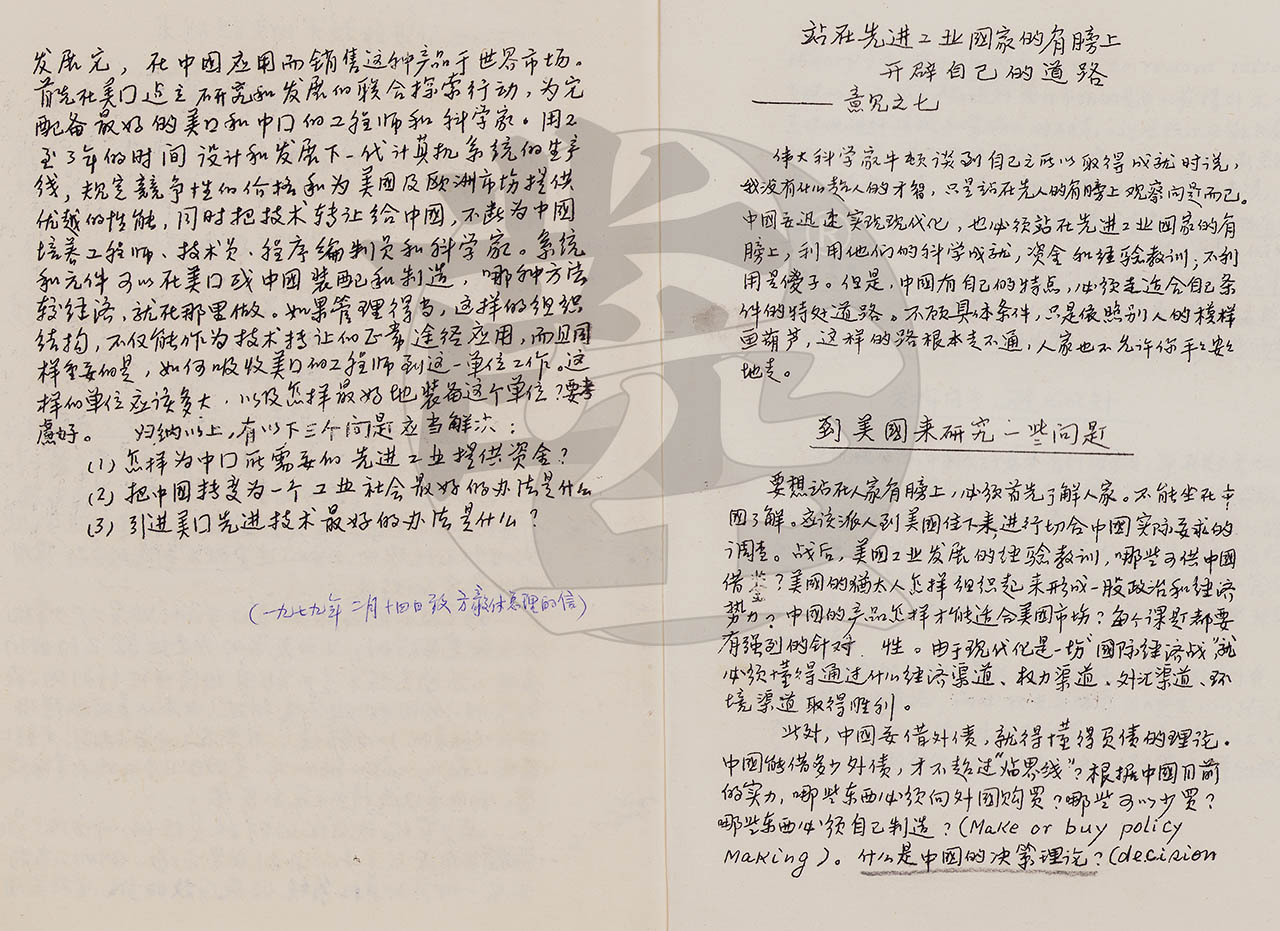 发展完，在中國应用而销售这种产品于世界市场。
首先在美囗边立研究和发展的联合探索行动，为它
配备最好的美囗和中囗的工程师和科学家。用2
至3年的时间设计和发展下一代计算机系统的生产
线，规定競争性的价格和为美國及欧洲市场提供
优越的性能，同时把技术转让给中國，不断为中國
培养工程师、技术员、程序编制员和科学家。系统
和元件可以在美囗或中國装配和制造，哪种方法
较经济，就在那里做。如果管理得当，这样的组织
结构，不仅能作为技术转让的正常途径应用，而且同
样重要的是，如何吸收美囗的工程师到这一单位工作。这
样的单位应该多大，以及怎样最好地装备这个单位？要考
慮好。 归纳以上，有以下三个问题应当解决：
(1) 怎样为中囗所需要的先进工业提供资金？
(2) 把中國转变为一个工业社会最好的办法是什么
(3) 引进美囗先进技术最好的办法是什么？
(一九七九年二月十四日致方毅付总理的信)
站在先进工业國家的肩膀上
开辟自己的道路
——意见之七
伟大科学家牛顿谈到自己之所以取得成就时说，
我没有什么超人的才智，只是站在先人的肩膀上观察问题而已。
中國要迅速实现现代化，也必须站在先进工业國家的肩
膀上，利用他们的科学成就，资金和经验教训；不利
用是傻子。但是，中國有自己的特点，必须走适合自己条
件的特好道路。不顾具体条件，只是依照别人的模样
画葫芦，这样的路根本走不通，人家也不允许你平平安安
地走。
到美國来研究一些问题
要想站在人家肩膀上，必须首先了解人家。不能坐在中
國了解。应该派人到美國住下来，进行切合中國实际要求的
调查。战后，美國工业发展的经验教训，哪些可供中國
借鉴？美國的犹太人怎样组织起来形成一股政治和经济
势力？中國的产品怎样才能适合美國市场？每个课题都要
有强烈的针对性。由于现代化是一场“國际经济战”就
必须懂得通过什么经济渠道、权力渠道、外汇渠道、环
境渠道取得胜利。
此外，中國要借外债，就得懂得负债的理论。
中國能借多少外债，才不超过“临界线”？根据中國目前
的实力，哪些东西必须向外國购買？哪些可以少買？
哪些东西必须自己制造？(Make or buy policy
Making)。什么是中國的决策理论？(decision